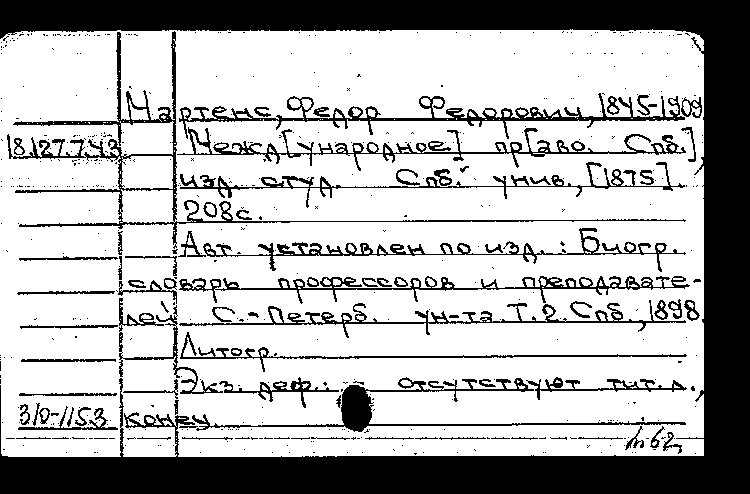 Мартенс, Федор Федорович, 1845-1909
18.127.7.43 Межд[ународное] пр[аво. Спб.],
изд. студ. Спб. унив., [1875].
208с.
Авт. установлен по изд.: Биогр.
словарь профессоров и преподавате-
лей С.-Петерб. ун-та. Т.2. Спб., 1898.
Литогр.
Экз. деф.: отсутствуют тит.л.,
310-1153 конец.
62